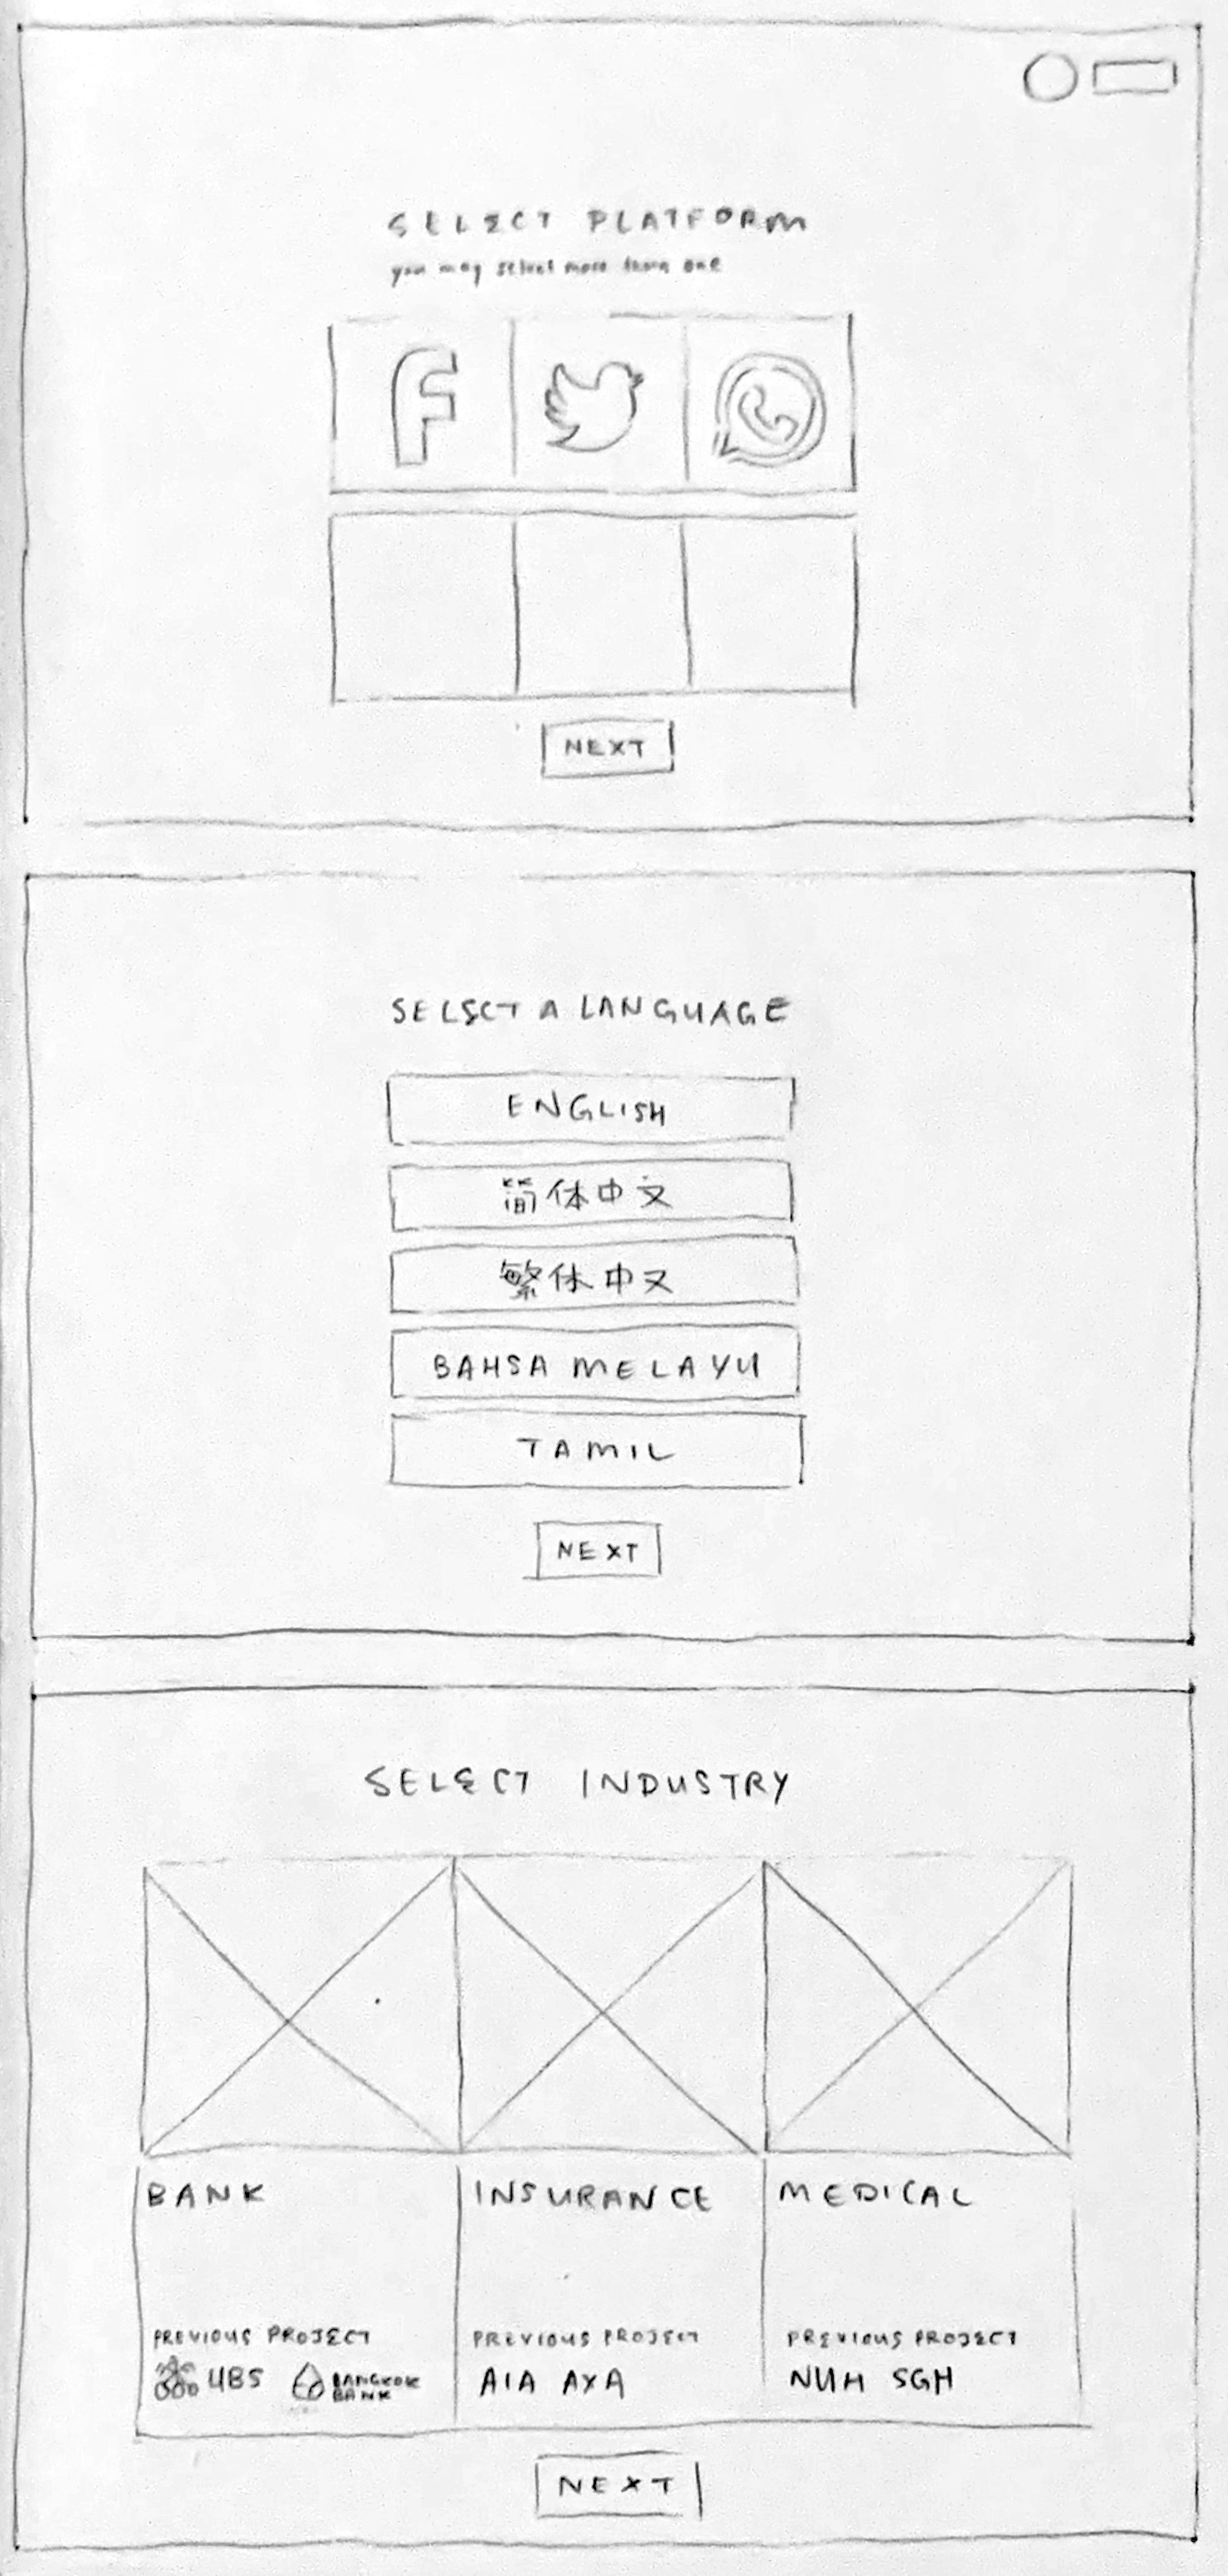 SELECT PLATFORM
you may select more than one
NEXT
SELECT A LANGUAGE
ENGLISH
简体中文
繁体中文
BAHSA MELAYU
TAMIL
NEXT
SELECT INDUSTRY
BANK INSURANCE MEDICAL
PREVIOUS PROJECT PREVIOUS PROJECT PREVIOUS PROJECT
UBS BANGKOK BANK AIA AXA NUH SGH
NEXT